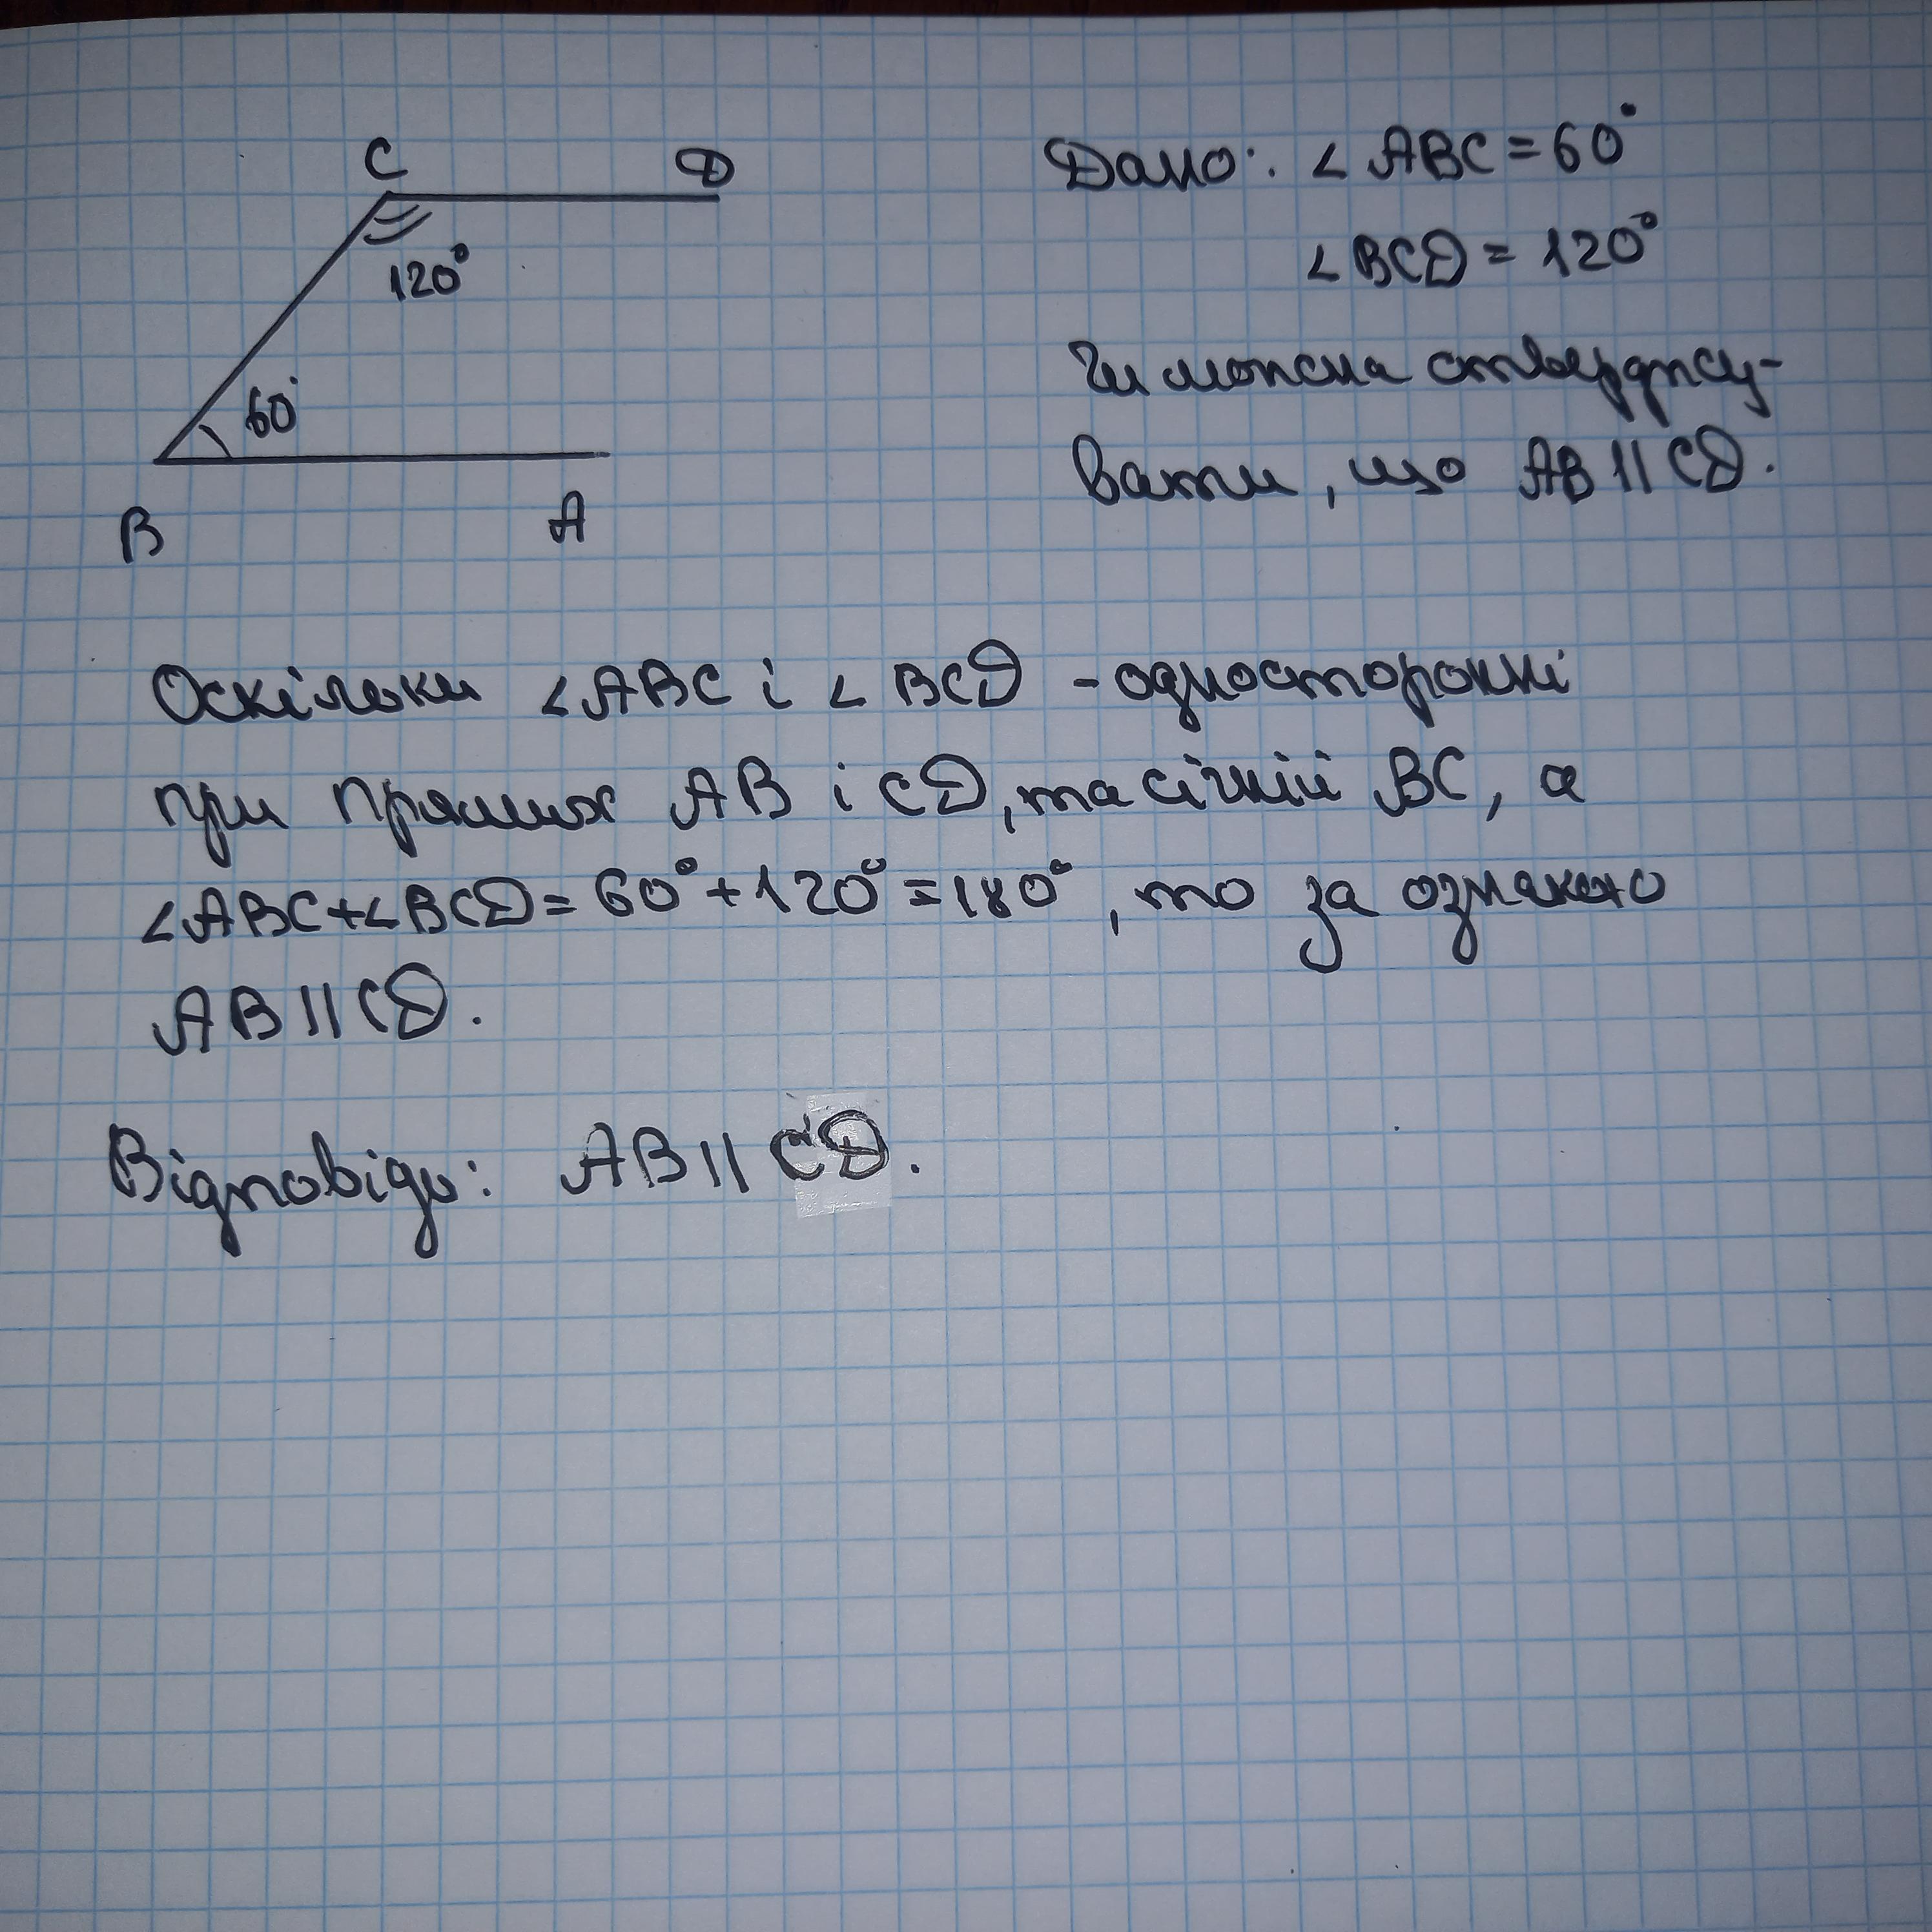 C D
120°
60°
B A
Дано: ∠ABC = 60°
∠BCD = 120°
Чи можна стверджу-
вати, що AB || CD.
Оскільки ∠ABC і ∠BCD - односторонні
при прямих AB і CD, та січній BC, а
∠ABC+∠BCD = 60° + 120° = 180°, то за ознакою
AB || CD.
Відповідь: AB || CD.